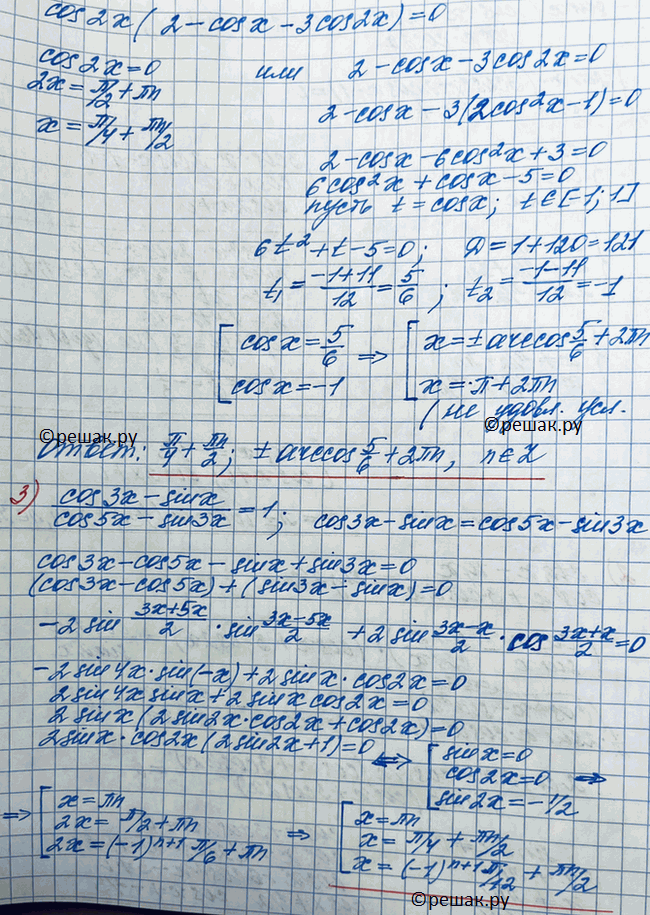 cos2x(2-cosx-3cos2x)=0
cos2x=0 или 2-cosx-3cos2x=0
2x=π/2+πn
2-cosx-3(2cos²x-1)=0
x=π/4+πn/2
2-cosx-6cos²x+3=0
6cos²x+cosx-5=0
пусть t=cosx; t∈[-1;1]
6t²+t-5=0; D=1+120=121
t₁=(-1+11)/12=5/6; t₂=(-1-11)/12=-1
[cosx=5/6 ⇒ [x=±arccos5/6+2πn
cosx=-1 x=π+2πn
(не удовл. усл.
©решак.ру
Ответ: π/4+πn/2; ±arccos5/6+2πn, n∈Z
3) (cos3x-sinx)/(cos5x-sin3x)=1; cos3x-sinx=cos5x-sin3x
cos3x-cos5x-sinx+sin3x=0
(cos3x-cos5x)+(sin3x-sinx)=0
-2sin (3x+5x)/2 · sin (3x-5x)/2 + 2sin (3x-x)/2 · cos (3x+x)/2=0
-2sin4x·sin(-x)+2sinx·cos2x=0
2sin4xsinx+2sinxcos2x=0
2sinx(2sin2x·cos2x+cos2x)=0
2sinx·cos2x(2sin2x+1)=0 ⇔ [sinx=0
cos2x=0 ⇒
sin2x=-1/2
⇒ [x=πn ⇒ [x=πn
2x=π/2+πn x=π/4+πn/2
2x=(-1)ⁿ⁺¹π/6+πn x=(-1)ⁿ⁺¹π/12+πn/2
©решак.ру